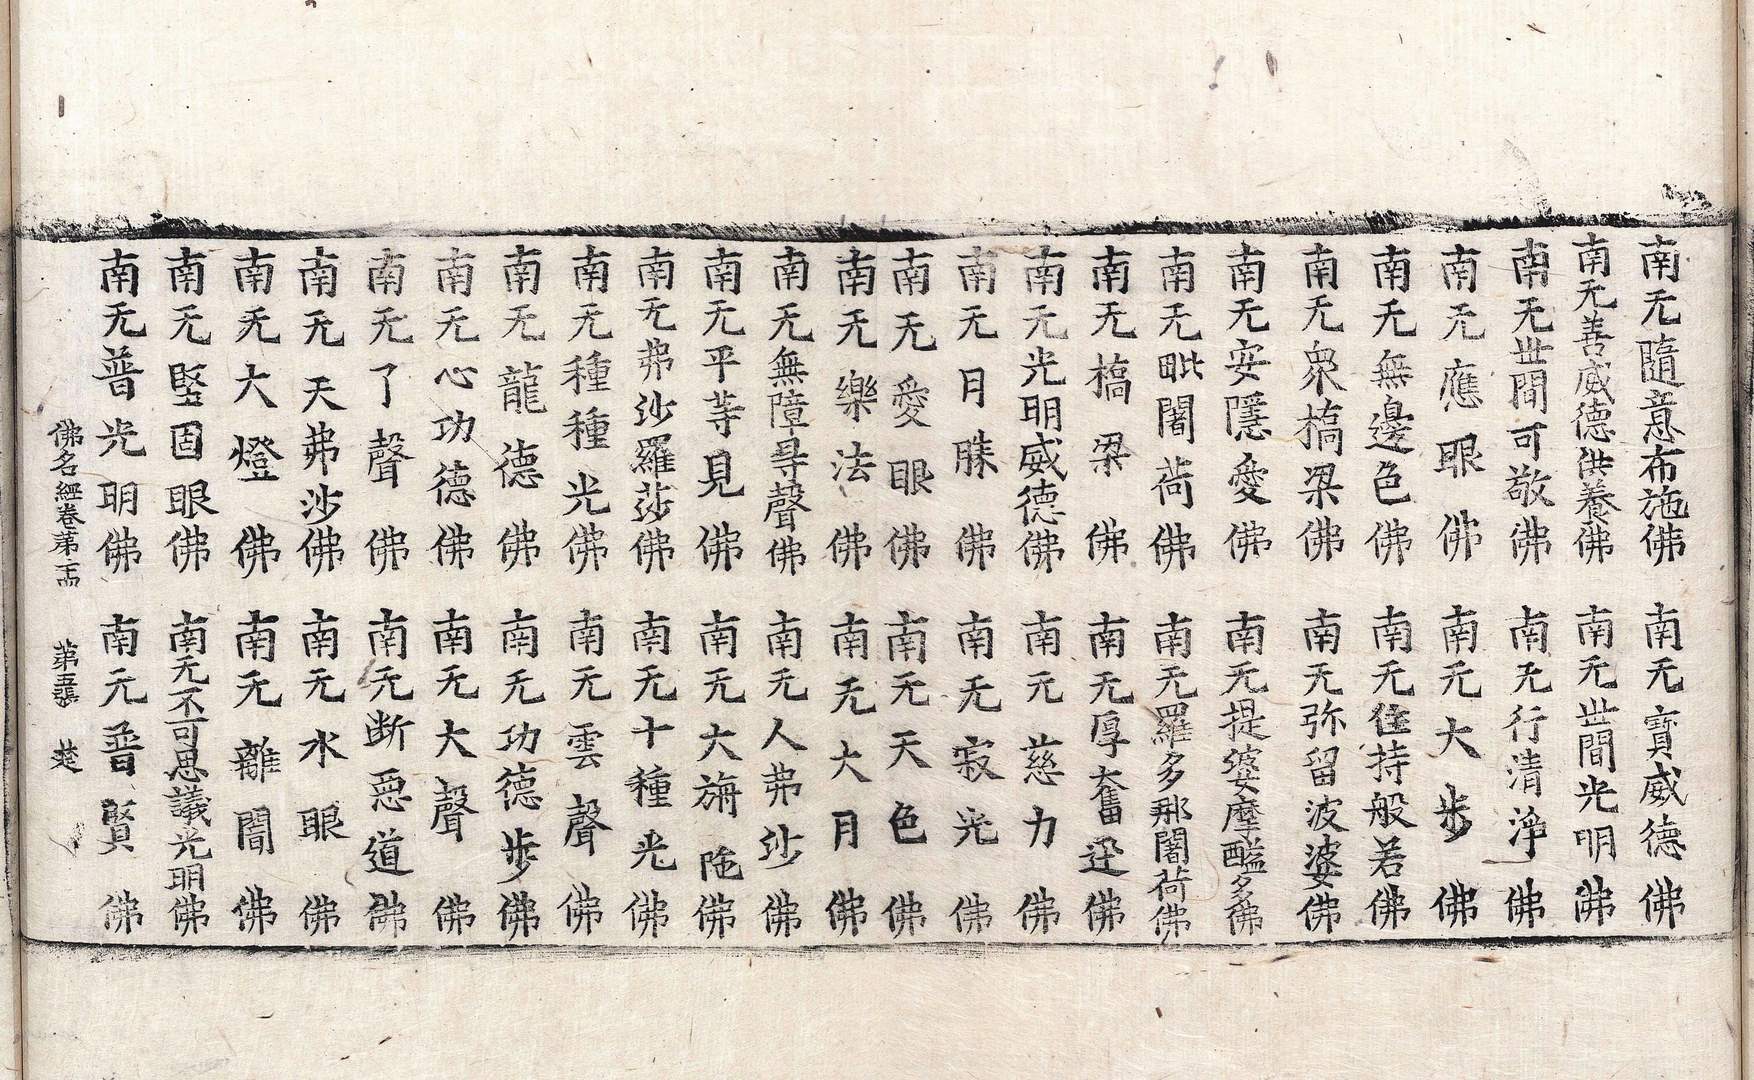 南无隨意布施佛　南无寶威德佛
南无善威德供養佛　南无世間光明佛
南无世間可敬佛　南无行清淨佛
南无應眼佛　南无大步佛
南无無邊色佛　南无住持般若佛
南无衆橋梁佛　南无弥留波婆佛
南无安隱愛佛　南无提婆摩醯多佛
南无毗闍荷佛　南无羅多那闍荷佛
南无橋梁佛　南无厚奮迅佛
南无光明威德佛　南无慈力佛
南无月勝佛　南无寂光佛
南无愛眼佛　南无天色佛
南无樂法佛　南无大月佛
南无無障㝵聲佛　南无人弗沙佛
南无平等見佛　南无大旃陁佛
南无弗沙羅莎佛　南无十種光佛
南无種種光佛　南无雲聲佛
南无龍德佛　南无功德步佛
南无心功德佛　南无大聲佛
南无了聲佛　南无断惡道佛
南无天弗沙佛　南无水眼佛
南无大燈佛　南无離闇佛
南无堅固眼佛　南无不可思議光明佛
南无普光明佛　南无普賢佛
佛名經卷第　第五張　楚